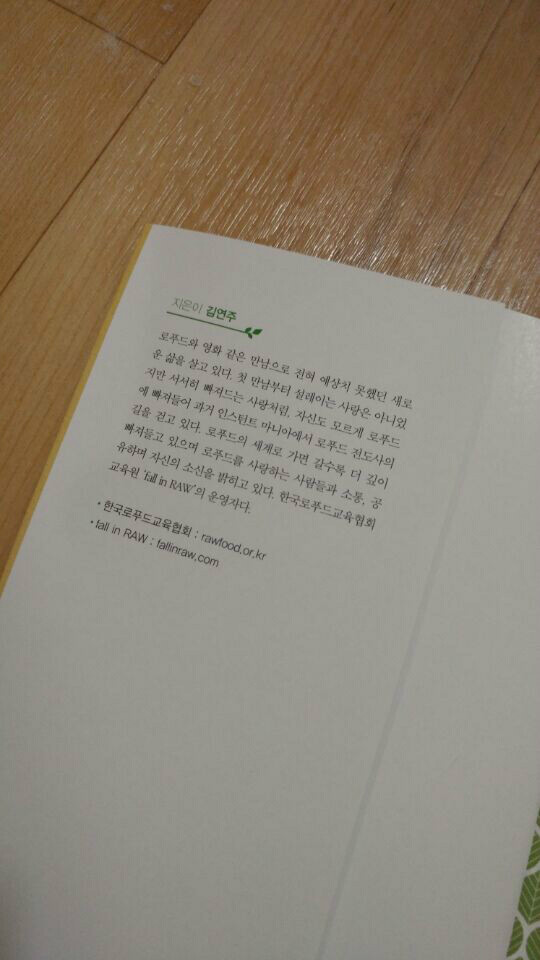 지은이 김연주
로푸드와 영화 같은 만남으로 전혀 예상치 못했던 새로
운 삶을 살고 있다. 첫 만남부터 설레이는 사랑은 아니었
지만 서서히 빠져드는 사랑처럼, 자신도 모르게 로푸드
에 빠져들어 과거 인스턴트 마니아에서 로푸드 전도사의
길을 걷고 있다. 로푸드의 세계로 가면 갈수록 더 깊이
빠져들고 있으며 로푸드를 사랑하는 사람들과 소통, 공
유하며 자신의 소신을 밝히고 있다. 한국로푸드교육협회
교육원 'fall in RAW'의 운영자다.
• 한국로푸드교육협회 : rawfood.or.kr
• fall in RAW : fallinraw.com